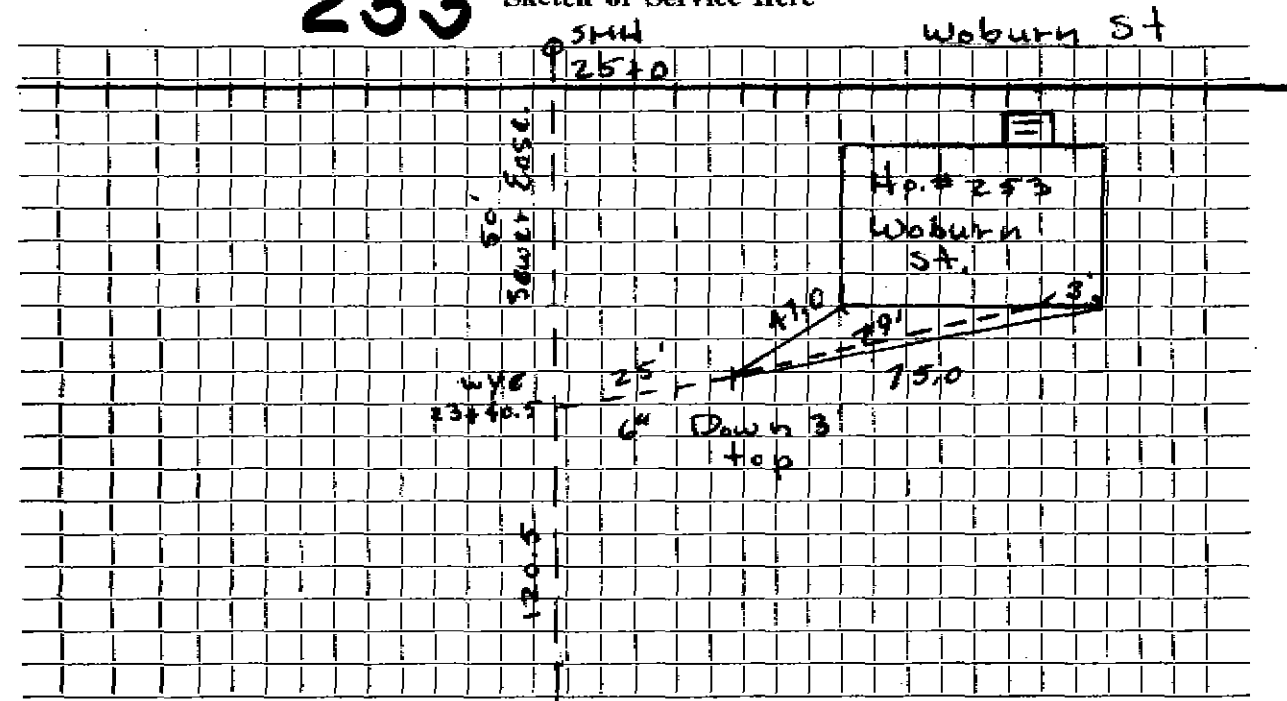 253
Sketch of Service Here
SMH
25+0
Woburn St
50'
Sewer Ease.
Hp. # 253
Woburn
St.
3'
47.0
29'
75.0
25'
wye
23+40.5
6"
Down 3'
top
120.5